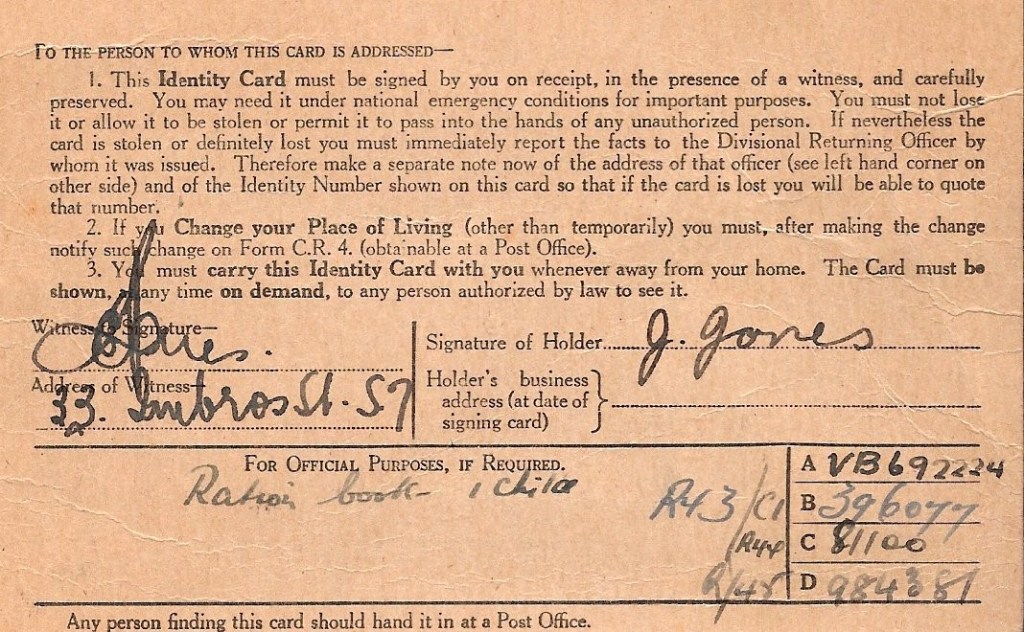 TO THE PERSON TO WHOM THIS CARD IS ADDRESSED—
1. This Identity Card must be signed by you on receipt, in the presence of a witness, and carefully
preserved. You may need it under national emergency conditions for important purposes. You must not lose
it or allow it to be stolen or permit it to pass into the hands of any unauthorized person. If nevertheless the
card is stolen or definitely lost you must immediately report the facts to the Divisional Returning Officer by
whom it was issued. Therefore make a separate note now of the address of that officer (see left hand corner on
other side) and of the Identity Number shown on this card so that if the card is lost you will be able to quote
that number.
2. If you Change your Place of Living (other than temporarily) you must, after making the change
notify such change on Form C.R. 4. (obtainable at a Post Office).
3. You must carry this Identity Card with you whenever away from your home. The Card must be
shown, at any time on demand, to any person authorized by law to see it.
Witness's Signature—
Address of Witness—
33. Imbros St. 57
Signature of Holder J. Jones
Holder's business
address (at date of
signing card)
FOR OFFICIAL PURPOSES, IF REQUIRED.
Ration book 1 Child
R43/C1
R44
R/45
A VB692224
B 396077
C 81100
D 984381
Any person finding this card should hand it in at a Post Office.